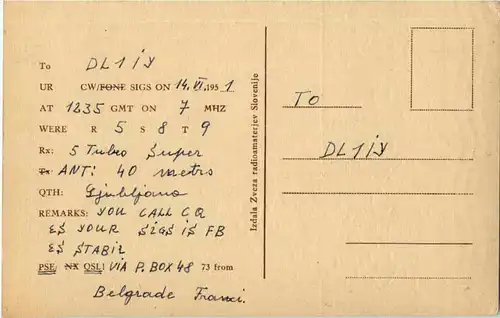 To DL1IY
UR CW/FONE SIGS ON 14.VI.1951
AT 1235 GMT ON 7 MHZ
WERE R 5 S 8 T 9
Rx: 5 Tubo Super
Tx: ANT: 40 metrs
QTH: Ljubljana
REMARKS: YOU CALL CQ
ES YOUR SIGS IS FB
ES STABIL
PSE NX QSL! VIA P. BOX 48 73 from
Belgrade Franci.
Izdala Zveza radioamaterjev Slovenije
TO
DL1IY